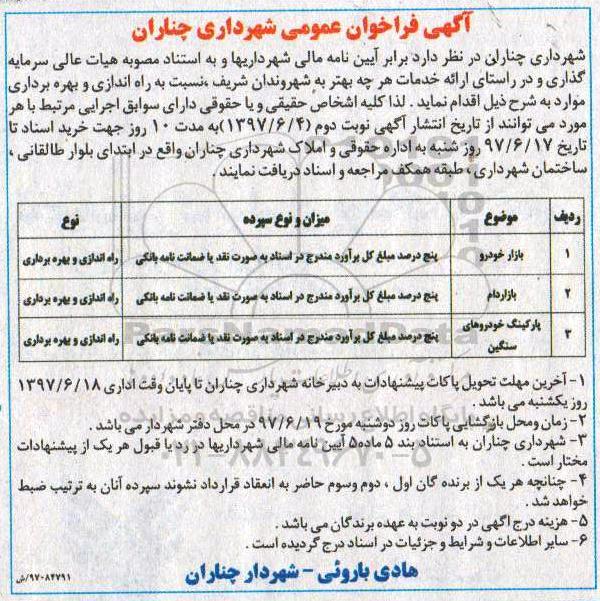 آگهی فراخوان عمومی شهرداری چناران
شهرداری چناران در نظر دارد برابر آیین نامه مالی شهرداریها و به استناد مصوبه هیات عالی سرمایه
گذاری و در راستای ارائه خدمات هر چه بهتر به شهروندان شریف ،نسبت به راه اندازی و بهره برداری
موارد به شرح ذیل اقدام نماید . لذا کلیه اشخاص حقیقی و یا حقوقی دارای سوابق اجرایی مرتبط با هر
مورد می توانند از تاریخ انتشار آگهی نوبت دوم (۱۳۹۷/۶/۴)به مدت ۱۰ روز جهت خرید اسناد تا
تاریخ ۹۷/۶/۱۷ روز شنبه به اداره حقوقی و املاک شهرداری چناران واقع در ابتدای بلوار طالقانی ،
ساختمان شهرداری ، طبقه همکف مراجعه و اسناد دریافت نمایند .
ردیف موضوع میزان و نوع سپرده نوع
۱ بازار خودرو پنج درصد مبلغ کل برآورد مندرج در اسناد به صورت نقد یا ضمانت نامه بانکی راه اندازی و بهره برداری
۲ بازاردام پنج درصد مبلغ کل برآورد مندرج در اسناد به صورت نقد یا ضمانت نامه بانکی راه اندازی و بهره برداری
۳ پارکینگ خودروهای سنگین پنج درصد مبلغ کل برآورد مندرج در اسناد به صورت نقد یا ضمانت نامه بانکی راه اندازی و بهره برداری
۱- آخرین مهلت تحویل پاکات پیشنهادات به دبیرخانه شهرداری چناران تا پایان وقت اداری ۱۳۹۷/۶/۱۸
روز یکشنبه می باشد .
۲- زمان ومحل بازگشایی پاکات روز دوشنبه مورخ ۹۷/۶/۱۹ در محل دفتر شهردار می باشد .
۳- شهرداری چناران به استناد بند ۵ ماده۵ آیین نامه مالی شهرداریها در رد یا قبول هر یک از پیشنهادات
مختار است .
۴- چنانچه هر یک از برنده گان اول ، دوم وسوم حاضر به انعقاد قرارداد نشوند سپرده آنان به ترتیب ضبط
خواهد شد .
۵- هزینه درج اگهی در دو نوبت به عهده برندگان می باشد .
۶- سایر اطلاعات و شرایط و جزئیات در اسناد درج گردیده است .
هادی باروئی - شهردار چناران
۹۷۰۸۴۷۹۱/ش
ParsNamadData
پایگاه اطلاع رسانی مناقصه و مزایده
۰۲۱-۸۸۳۴۹۶۷۰-۵